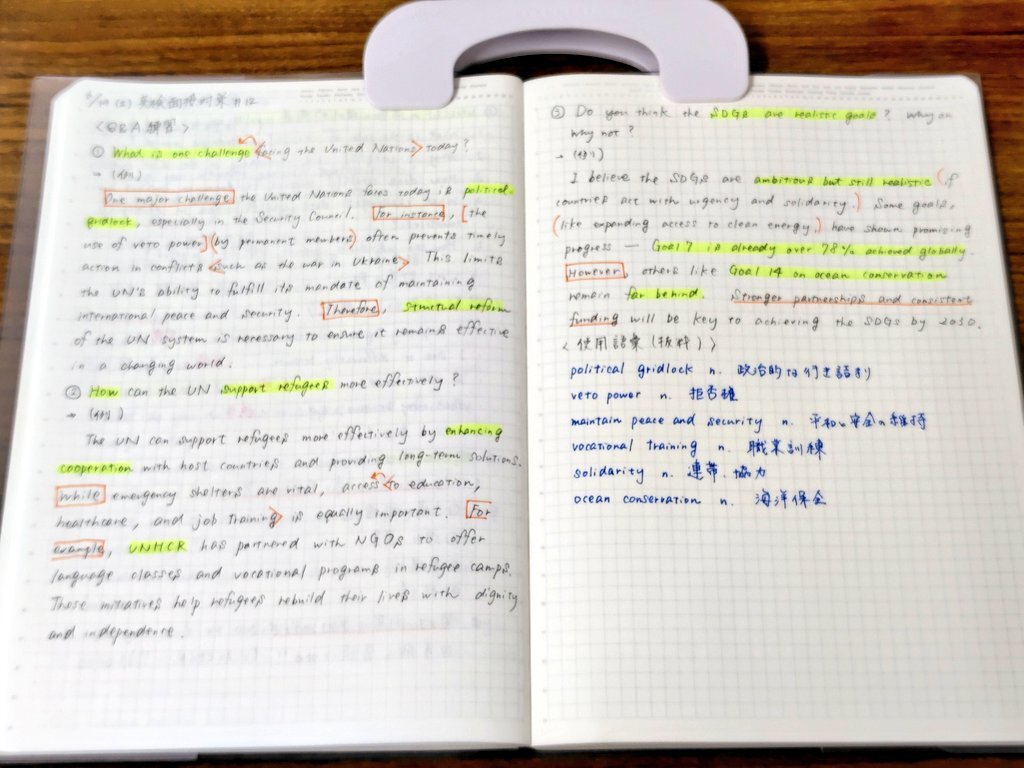 5/19 (土) 英検面接対策 #12
<Q&A 練習>
① What is one challenge <facing the United Nations> today?
→ (例)
One major challenge the United Nations faces today is political
gridlock, especially in the Security Council. For instance, [the
use of veto power] (by permanent members) often prevents timely
action in conflicts <such as the war in Ukraine>. This limits
the UN's ability to fulfill its mandate of maintaining
international peace and security. Therefore, structual reform
of the UN system is necessary to ensure it remains effective
in a changing world.
② How can the UN support refugees more effectively?
→ (例)
The UN can support refugees more effectively by enhancing
cooperation with host countries and providing long-term solutions.
While emergency shelters are vital, access <to education,
healthcare, and job training> is equally important. For
example, UNHCR has partnered with NGOs to offer
language classes and vocational programs in refugee camps.
These initiatives help refugees rebuild their lives with dignity
and independence.
③ Do you think the SDGs are realistic goals? Why or
why not?
→ (例)
I believe the SDGs are ambitious but still realistic (if
countries act with urgency and solidarity.) Some goals,
(like expanding access to clean energy,) have shown promising
progress — Goal 7 is already over 78% achieved globally.
However, others like Goal 14 on ocean conservation
remain far behind. Stronger partnerships and consistent
funding will be key to achieving the SDGs by 2030.
<使用語彙(抜粋)>
political gridlock n. 政治的な行き詰り
veto power n. 拒否権
maintain peace and security n. 平和と安全の維持
vocational training n. 職業訓練
solidarity n. 連帯、協力
ocean conservation n. 海洋保全